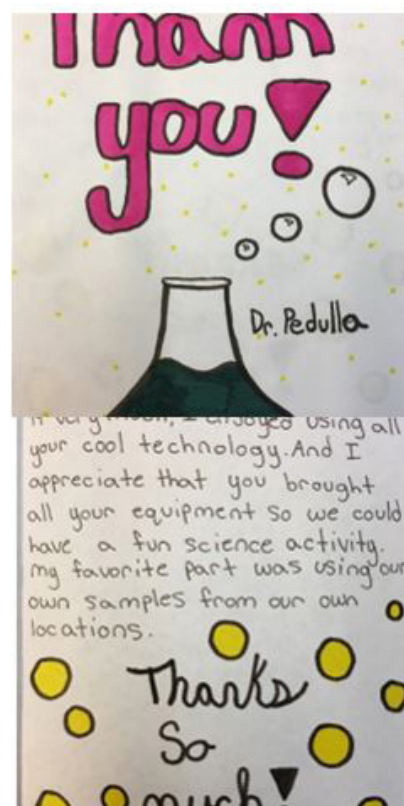 Thank
you!
Dr. Pedulla
it very much, I enjoyed using all
your cool technology. And I
appreciate that you brought
all your equipment so we could
have a fun science activity.
my favorite part was using our
own samples from our own
locations.
Thanks
So
much!